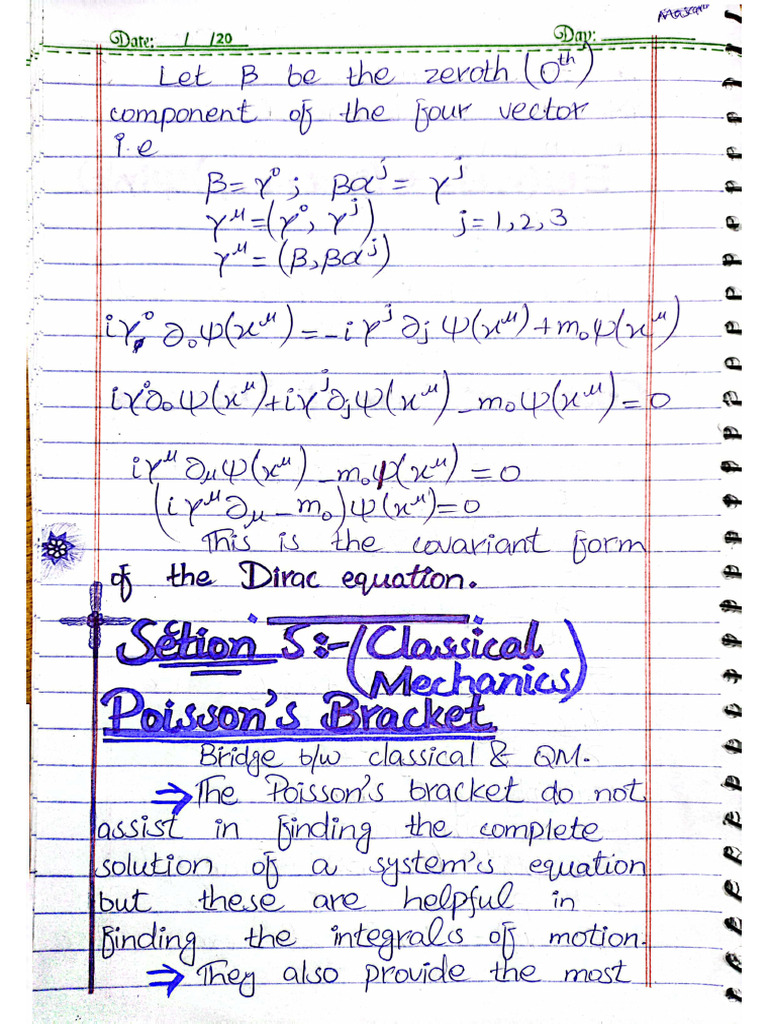 Date: / /20 Day:
Let β be the zeroth (0th)
component of the four vector
i.e
β = γ⁰ ; βα^j = γ^j
γ^μ = (γ⁰, γ^j) j = 1, 2, 3
γ^μ = (β, βα^j)
iγ⁰ ∂₀ψ(x^μ) = -iγ^j ∂j ψ(x^μ) + m₀ψ(x^μ)
iγ⁰∂₀ψ(x^μ) + iγ^j∂jψ(x^μ) - m₀ψ(x^μ) = 0
iγ^μ ∂μψ(x^μ) - m₀ψ(x^μ) = 0
(iγ^μ ∂μ - m₀)ψ(x^μ) = 0
This is the covariant form
of the Dirac equation.
Setion 5:-(Classical
Mechanics)
Poisson's Bracket
Bridge b/w classical & QM.
⇒ The Poisson's bracket do not
assist in finding the complete
solution of a system's equation
but these are helpful in
finding the integrals of motion.
⇒ They also provide the most